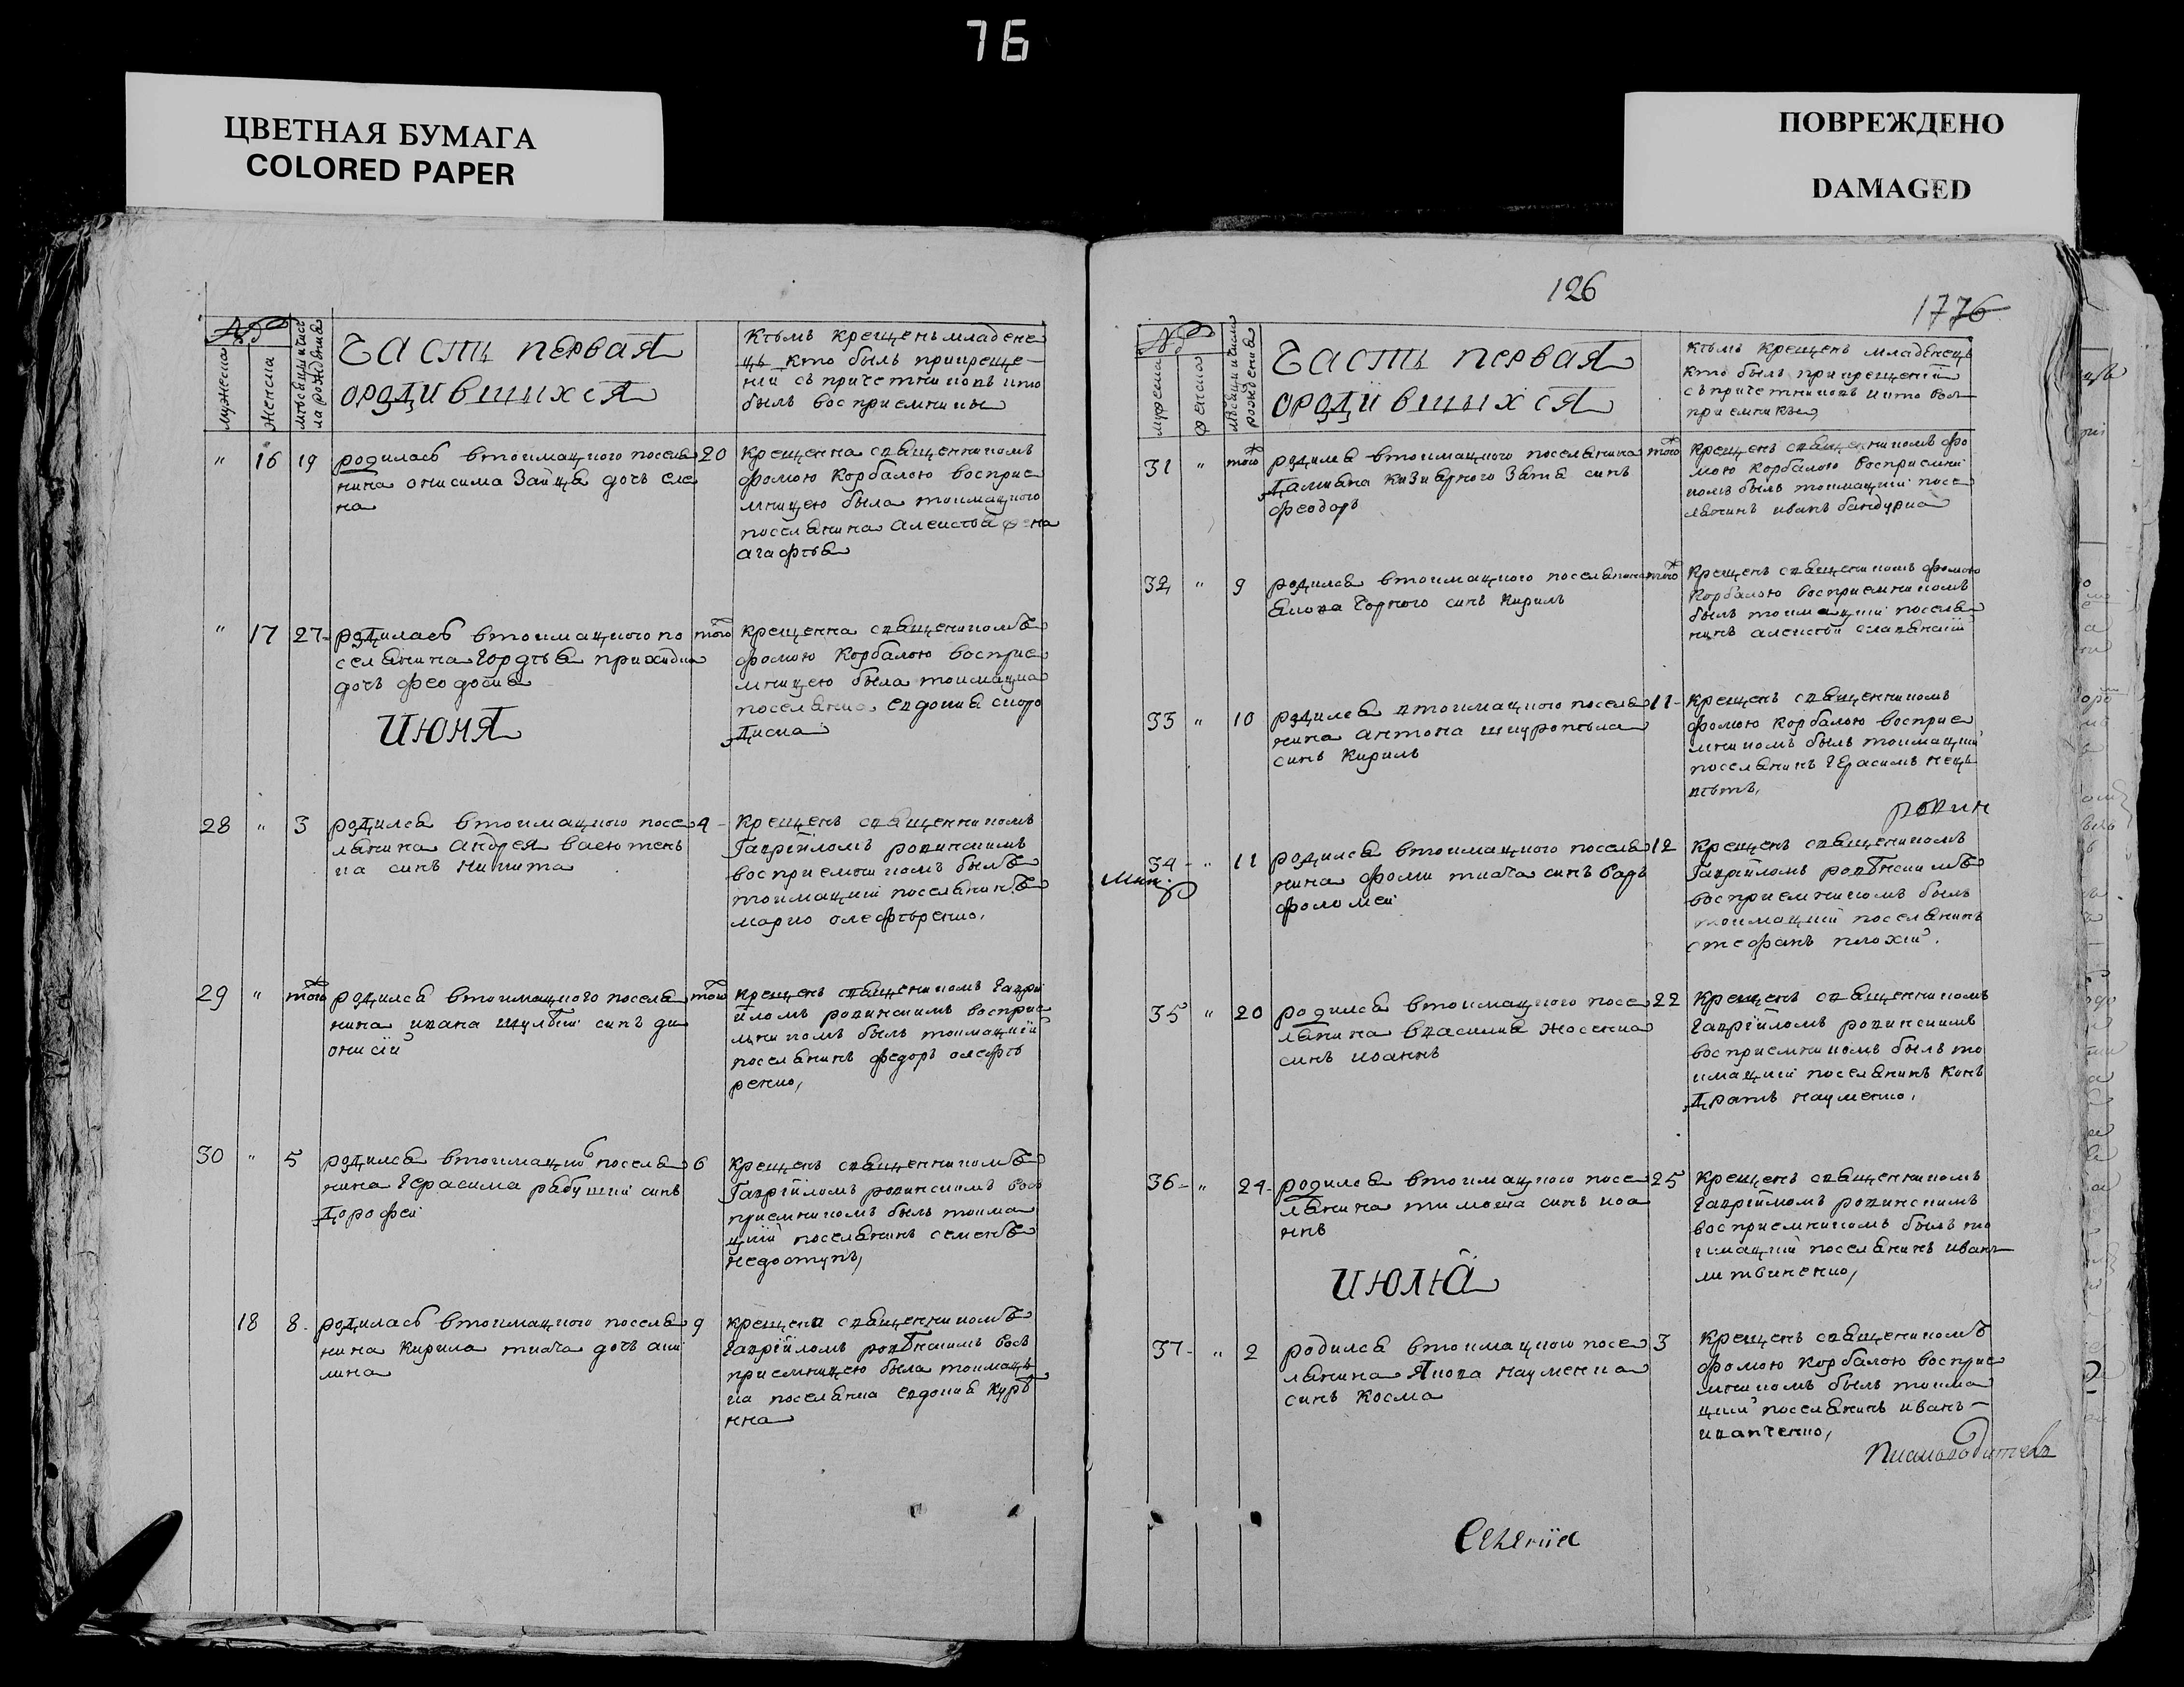 76
ЦВЕТНАЯ БУМАГА
COLORED PAPER
ПОВРЕЖДЕНО
DAMAGED
мужеска
женска
часть первая
ородившыхся
Кѣмъ крещенъ младене
цъ кто былъ прикреще-
ніи съ причетниковъ икто
былъ восприемники
" 16 19 родилась втоимацкого поселя
нина онисима Зайца дочъ еле
на
20 Крещенна священникомъ
фомою корбалою восприе
мницею была тоимацкого
поселянина алексѣя жена
агафѣя
" 17 27 родилась втоимацкого по
селянина гордѣя приходка
дочъ феодосия
того крещенна священникомъ
фомою корбалою восприе
мницею была тоимацка
поселянка евдокия скоро
диска
ИЮНЯ
28 " 3 родился втоимацкого посе
лянина андрея васютен
ка синъ никита
4 Крещенъ священникомъ
Гавріиломъ ровинскимъ
восприемникомъ былъ
тоимацкий поселянинъ
марко олефѣренко,
29 " того родился втоимацкого поселя
нина ивана шулги синъ ди
онисій
того крещенъ священикомъ гаврі
иломъ ровинскимъ восприе
мникомъ былъ тоимацкій
поселянинъ федоръ олефѣ
ренко,
30 " 5 родился втоимацко поселя
нина герасима рабушки синъ
дорофей
6 Крещенъ священникомъ
Гавріиломъ ровинскимъ вос
приемникомъ былъ тоима
цкій поселянинъ семенъ
недоступъ,
18 8 родилась втоимацкого поселя
нина кирила ткача дочъ аки
лина
9 крещена священникомъ
гавріиломъ ровѣнскимъ вос
приемницею была тоимац
ка поселянка евдокия курѣ
нна
126
1776
часть первая
ородившыхся
Кѣмъ крещенъ младенецъ
кто былъ прикрещеніи
съ причетниковъ икто вос
приемники,
31 " того родился втоимацкого поселянина
дамияна кизиарного Зятя синъ
феодоръ
того крещенъ священникомъ фо
мою корбалою восприемни
комъ былъ тоимацкій посе
лянинъ иванъ бандурка
32 " 9 родился втоимацкого поселянина
якова чорного синъ кирилъ
того Крещенъ священикомъ фомою
корбалою восприемникомъ
былъ тоимацкій поселя
нинъ алексѣй
33 " 10 родился втоимацкого поселя
нина антона шкуропѣла
синъ кирилъ
11 крещенъ священникомъ
фомою корбалою восприе
мникомъ былъ тоимацкій
поселянинъ герасимъ нецв
ѣтъ,
ровин
34 " 11 родился втоимацкого поселя
нина фоми ткача синъ вар
фоломей
12 Крещенъ священикомъ
Гавріиломъ ровѣнскимъ
восприемникомъ былъ
тоимацкий поселянинъ
стефанъ плохій.
35 " 20 родился втоимацкого посе
лянина василия носенка
синъ иоаннъ
22 Крещенъ священникомъ
гавріиломъ ровинскимъ
восприемникомъ былъ то
имацкій поселянинъ кон
дратъ науменко,
36 " 24 родился втоимацкого посе
лянина тимоша синъ иоа
ннъ
25 Крещенъ священникомъ
гавріиломъ ровинскимъ
восприемникомъ былъ то
имацкій поселянинъ иванъ
литвиненко,
ИЮЛЯ
37 " 2 родился втоимацкого посе
лянина якова науменка
синъ косма
3 Крещенъ священикомъ
фомою корбалою восприе
мникомъ былъ тоима
цкій поселянинъ иванъ
иванченко,